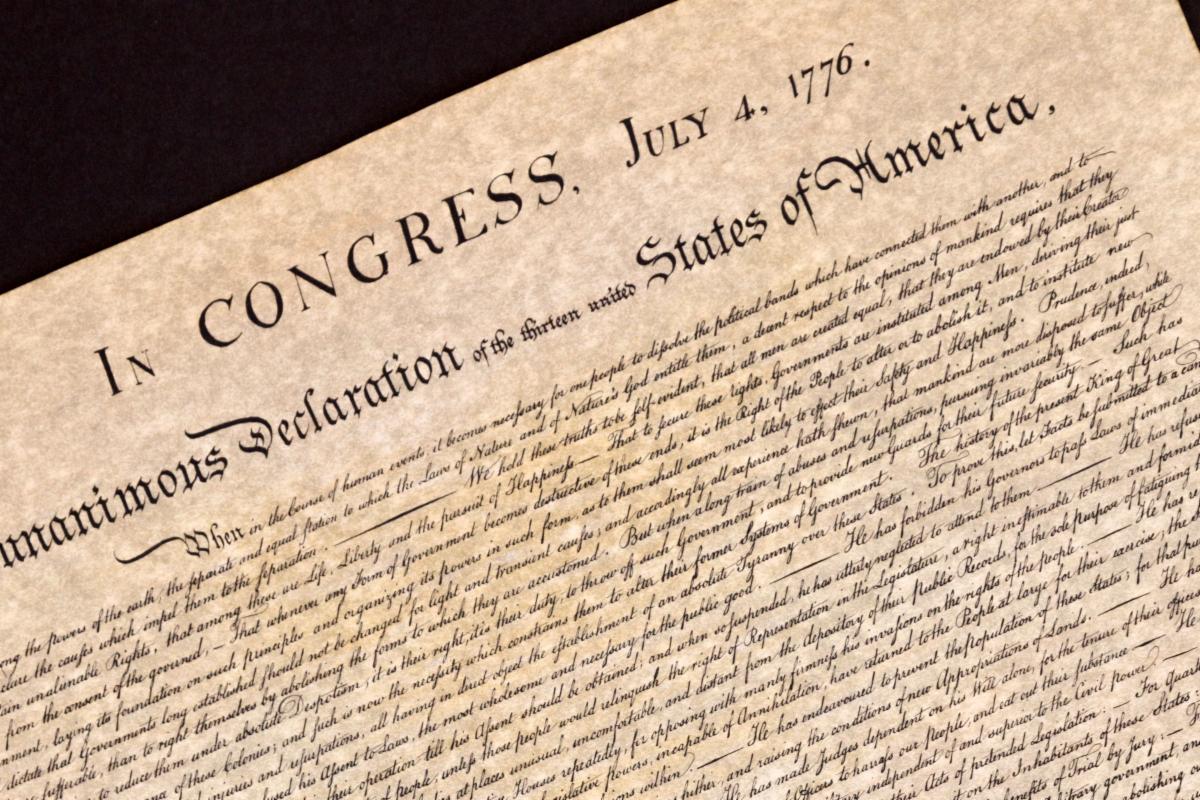 In CONGRESS, July 4, 1776.
unanimous Declaration of the thirteen united States of America,
When in the Course of human events, it becomes necessary for one people to dissolve the political bands which have connected them with another, and to
ong the powers of the earth, the separate and equal station to which the Laws of Nature and of Nature's God entitle them, a decent respect to the opinions of mankind requires that they
clare the causes which impel them to the separation. — We hold these truths to be self-evident, that all men are created equal, that they are endowed by their Creator
tain unalienable Rights, that among these are Life, Liberty and the pursuit of Happiness.— That to secure these rights, Governments are instituted among Men, deriving their just
from the consent of the governed, — That whenever any Form of Government becomes destructive of these ends, it is the Right of the People to alter or to abolish it, and to institute new
nment, laying its foundation on such principles and organizing its powers in such form, as to them shall seem most likely to effect their Safety and Happiness. Prudence, indeed,
dictate that Governments long established should not be changed for light and transient causes; and accordingly all experience hath shewn, that mankind are more disposed to suffer, while
sufferable, than to right themselves by abolishing the forms to which they are accustomed. But when a long train of abuses and usurpations, pursuing invariably the same Object
to reduce them under absolute Despotism, it is their right, it is their duty, to throw off such Government, and to provide new Guards for their future security.— Such has
ance of these Colonies; and such is now the necessity which constrains them to alter their former Systems of Government. The history of the present King of Great
injuries and usurpations, all having in direct object the establishment of an absolute Tyranny over these States. To prove this, let Facts be submitted to a can
fused his Assent to Laws, the most wholesome and necessary for the public good. — He has forbidden his Governors to pass Laws of immedia
their operation till his Assent should be obtained; and when so suspended, he has utterly neglected to attend to them. — He has refus
of people, unless those people would relinquish the right of Representation in the Legislature, a right inestimable to them and formid
at places unusual, uncomfortable, and distant from the depository of their Public Records, for the sole purpose of fatiguing
Houses repeatedly, for opposing with manly firmness his invasions on the rights of the people. — He has
gislative powers, incapable of Annihilation, have returned to the People at large for their exercise; the
ons within. — He has endeavoured to prevent the population of these States; for that pur
hither, and raising the conditions of new Appropriations of Lands. — He ha
He has made Judges dependent on his Will alone, for the tenure of their offices
Officers to harrass our People, and eat out their substance. — He
itary independent of and superior to the Civil power. —
their Acts of pretended Legislation: — For Quar
it on the Inhabitants of these States
benefits of Trial by Jury: —
itary government, an
abolishing